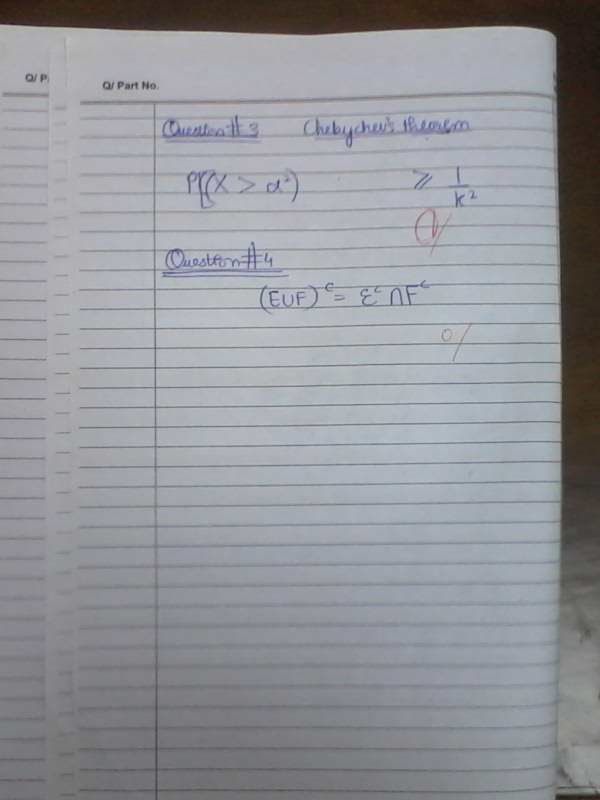 Q/ P
Q/ Part No.
Question # 3 Chebychev's theorem
Pr(X > a²) ≥ 1/k²
Question # 4
(EUF)ᶜ = Eᶜ ∩ Fᶜ
0/